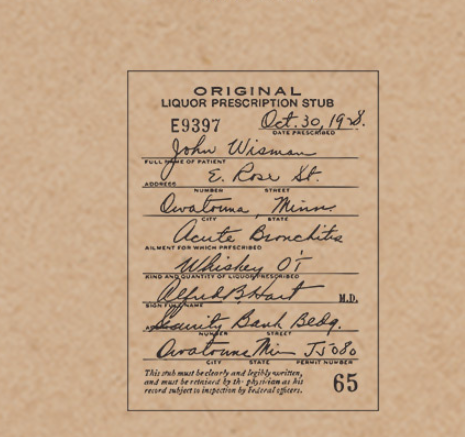 ORIGINAL
LIQUOR PRESCRIPTION STUB
E9397 Oct. 30, 1928.
DATE PRESCRIBED
John Wisman
FULL NAME OF PATIENT
E. Rose St.
ADDRESS NUMBER STREET
Owatonna, Minn.
CITY STATE
Acute Bronchitis
AILMENT FOR WHICH PRESCRIBED
Whiskey
KIND AND QUANTITY OF LIQUOR PRESCRIBED
Alfred B. Hart M.D.
SIGN FULL NAME
Security Bank Bldg.
NUMBER STREET
Owatonna Min
CITY STATE PERMIT NUMBER
This stub must be clearly and legibly written,
and must be retained by the physician as his
record subject to inspection by Federal officers.
65